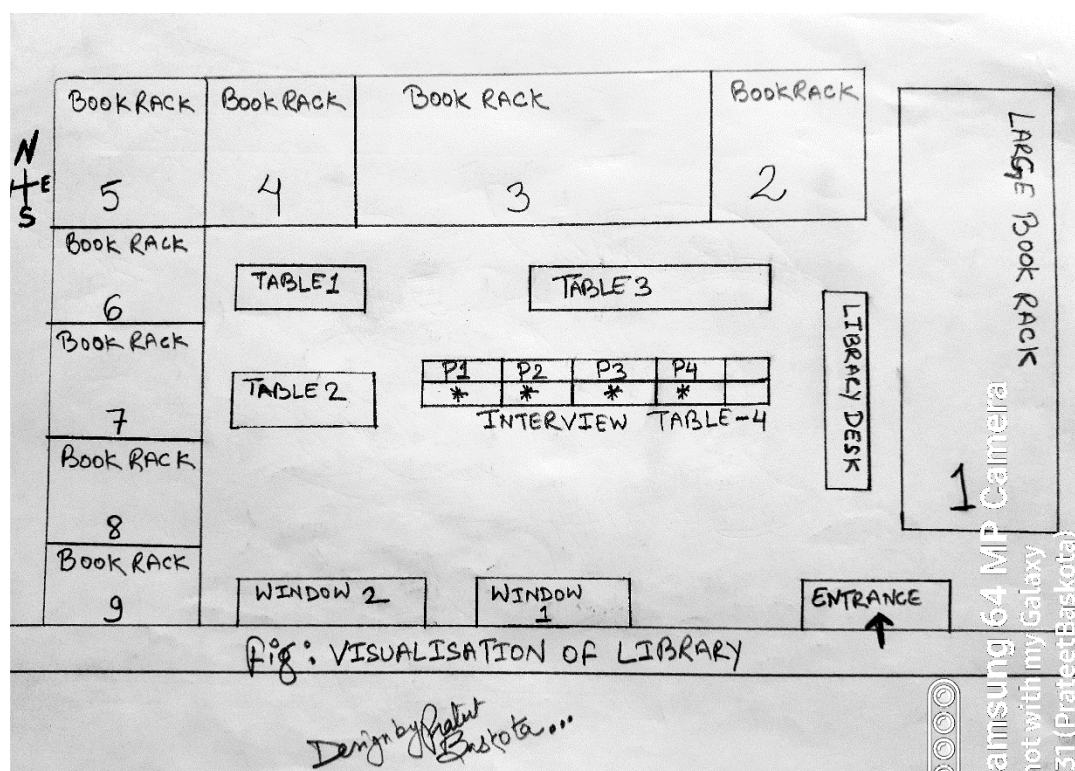 BOOK RACK
5
BOOK RACK
4
BOOK RACK
3
BOOK RACK
2
LARGE BOOK RACK
1
N
E
S
BOOK RACK
6
BOOK RACK
7
BOOK RACK
8
BOOK RACK
9
TABLE 1
TABLE 3
TABLE 2
P1 P2 P3 P4
* * * *
INTERVIEW TABLE-4
LIBRARY DESK
WINDOW 2
WINDOW
1
ENTRANCE
Fig: VISUALISATION OF LIBRARY
Design by Prateet
Baskota...
amsung 64 MP Camera
not with my Galaxy
31 (PrateetBaskota)